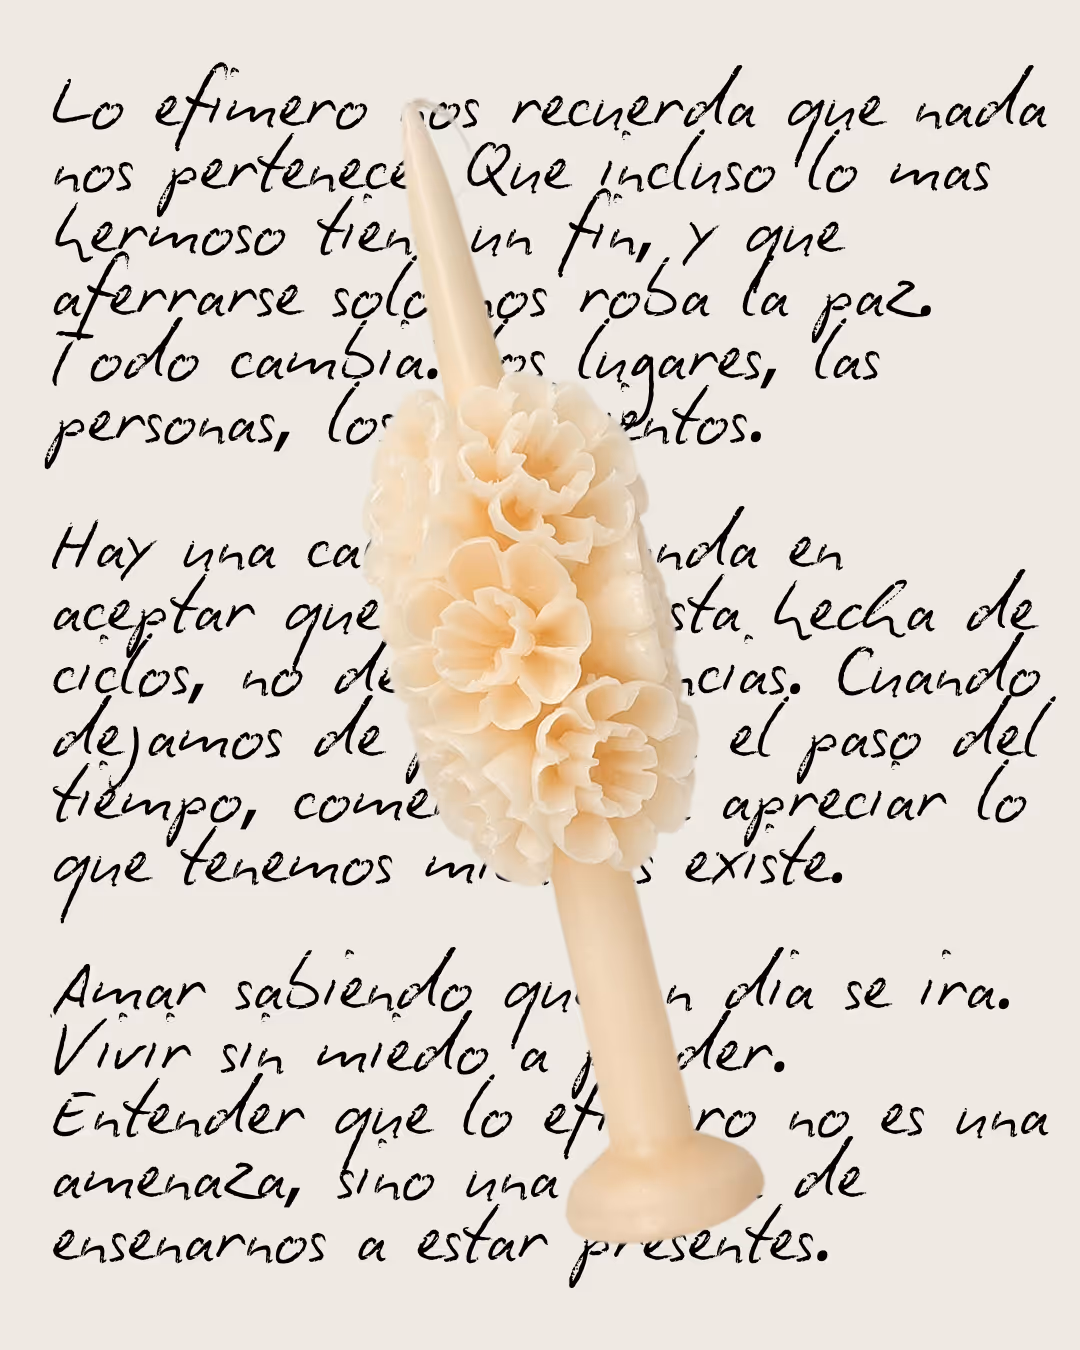 Lo efimero nos recuerda que nada
nos pertenece Que incluso lo mas
hermoso tiene un fin, y que
aferrarse solo nos roba la paz.
Todo cambia. los lugares, las
personas, los
Hay una en
aceptar que esta hecha de
ciclos, no de Cuando
dejamos de el paso del
tiempo, apreciar lo
que tenemos mientras existe.
Amar sabiendo que un dia se ira.
Vivir sin miedo a perder.
Entender que lo efimero no es una
amenaza, sino una de
ensenarnos a estar presentes.